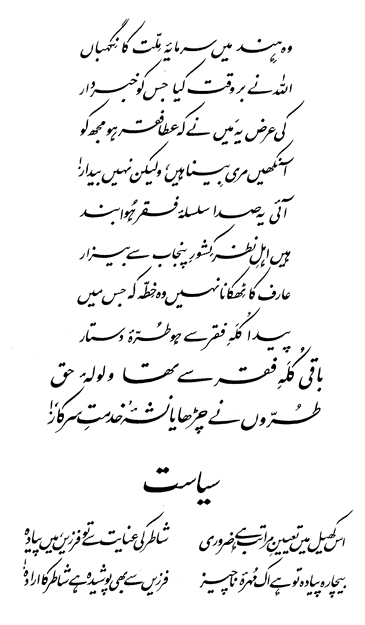 وہ ہند میں سرمایۂ ملّت کا نگہباں
اللہ نے بر وقت کیا جس کو خبردار
کی عرض یہ میں نے کہ عطا فقر ہو مجھ کو
آنکھیں مری بینا ہیں، ولیکن نہیں بیدار!
آئی یہ صدا سلسلۂ فقر ہُوا بند
ہیں اہلِ نظر کشورِ پنجاب سے بیزار
عارف کا ٹھکانا نہیں وہ خطّہ کہ جس میں
پیدا کُلَہِ فقر سے ہو طُرّۂ دستار
باقی کُلَہِ فقر سے تھا ولولۂ حق
طُرّوں نے چڑھایا نشۂ ’خدمتِ سرکار‘!
سیاست
اس کھیل میں تعیینِ مراتب ہے ضروری شاطر کی عنایت سے تو فرزیں، میں پیادہ
بیچارہ پیادہ تو ہے اک مُہرۂ ناچیز فرزیں سے بھی پوشیدہ ہے شاطر کا ارادہ!